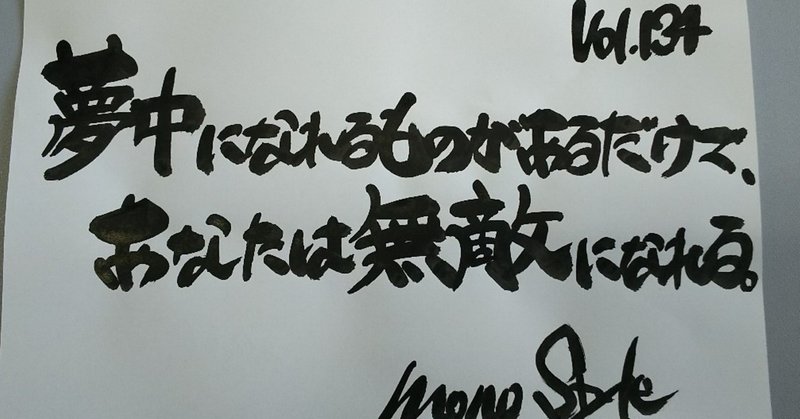 Vol.134
夢中になれるものがあるだけで、
あなたは無敵になれる。
mono Style